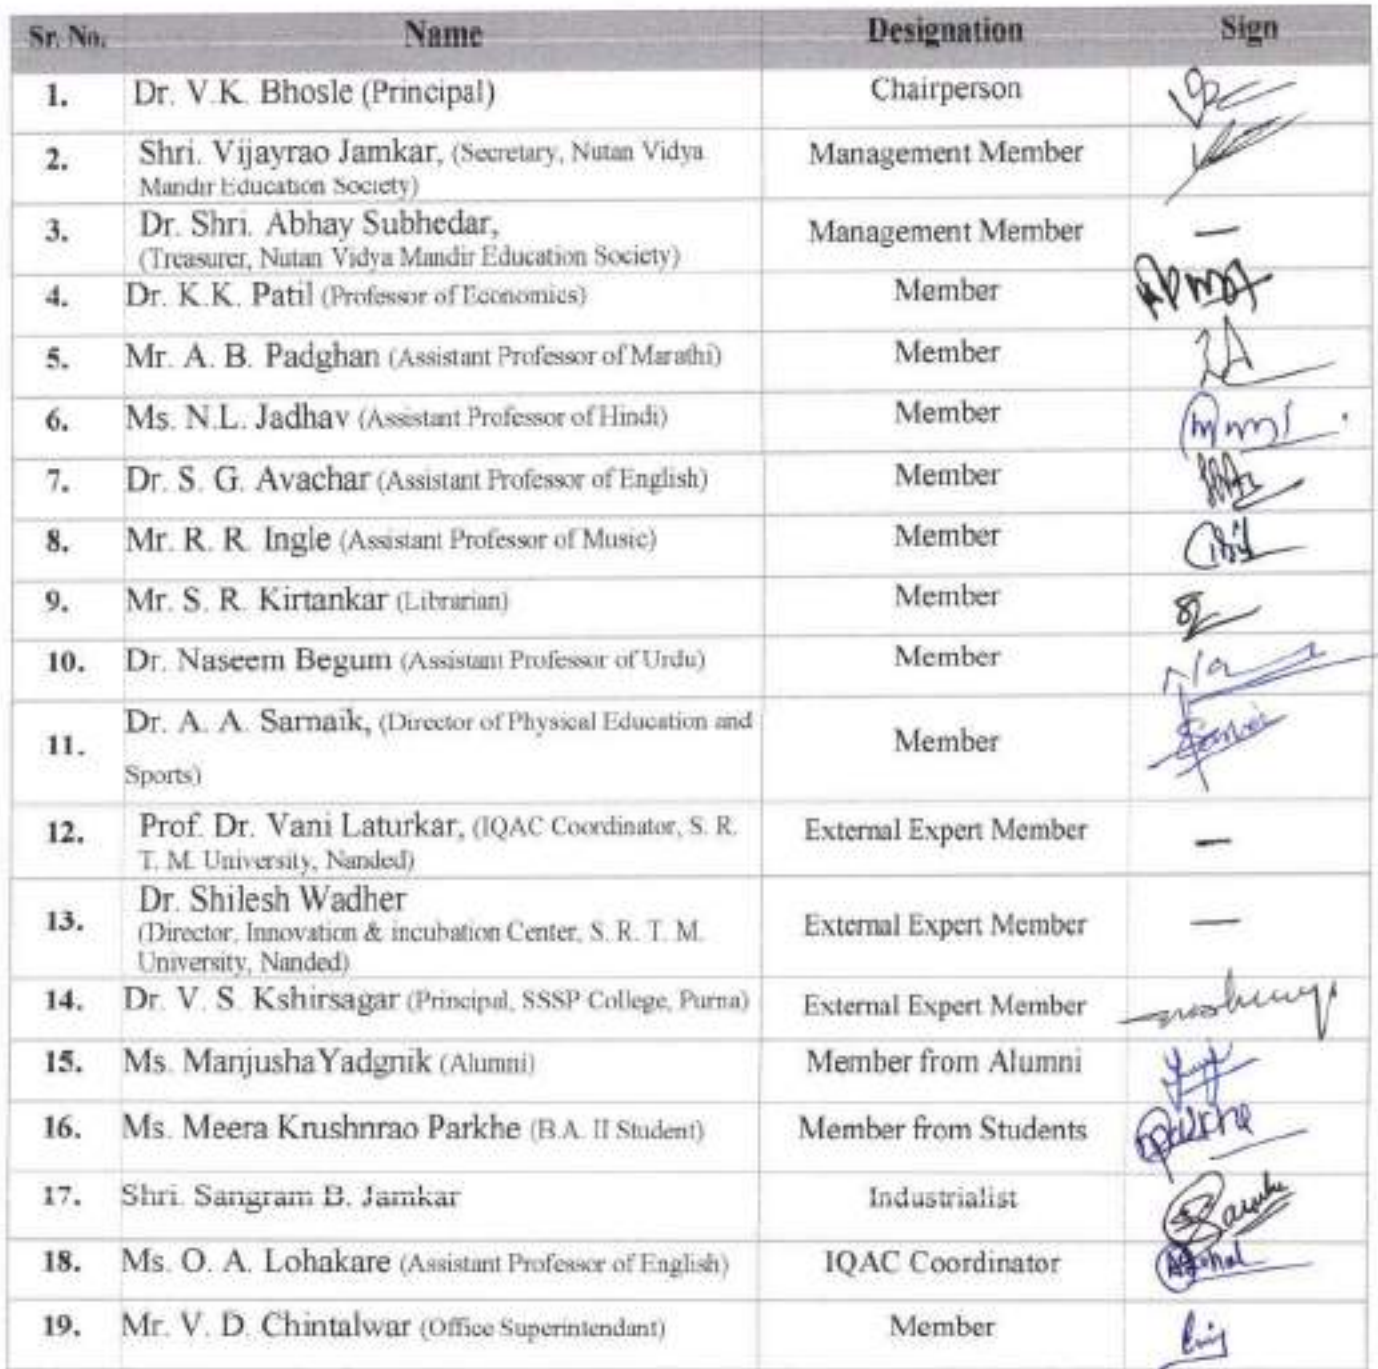 Sr. No. Name Designation Sign
1. Dr. V.K. Bhosle (Principal) Chairperson
2. Shri. Vijayrao Jamkar, (Secretary, Nutan Vidya Management Member
Mandir Education Society)
3. Dr. Shri. Abhay Subhedar, Management Member —
(Treasurer, Nutan Vidya Mandir Education Society)
4. Dr. K.K. Patil (Professor of Economics) Member
5. Mr. A. B. Padghan (Assistant Professor of Marathi) Member
6. Ms. N.L. Jadhav (Assistant Professor of Hindi) Member
7. Dr. S. G. Avachar (Assistant Professor of English) Member
8. Mr. R. R. Ingle (Assistant Professor of Music) Member
9. Mr. S. R. Kirtankar (Librarian) Member
10. Dr. Naseem Begum (Assistant Professor of Urdu) Member
11. Dr. A. A. Sarnaik, (Director of Physical Education and Member
Sports)
12. Prof. Dr. Vani Laturkar, (IQAC Coordinator, S. R. External Expert Member —
T. M. University, Nanded)
13. Dr. Shilesh Wadher External Expert Member —
(Director, Innovation & incubation Center, S. R. T. M.
University, Nanded)
14. Dr. V. S. Kshirsagar (Principal, SSSP College, Purna) External Expert Member
15. Ms. ManjushaYadgnik (Alumni) Member from Alumni
16. Ms. Meera Krushnrao Parkhe (B.A. II Student) Member from Students
17. Shri. Sangram B. Jamkar Industrialist
18. Ms. O. A. Lohakare (Assistant Professor of English) IQAC Coordinator
19. Mr. V. D. Chintalwar (Office Superintendant) Member